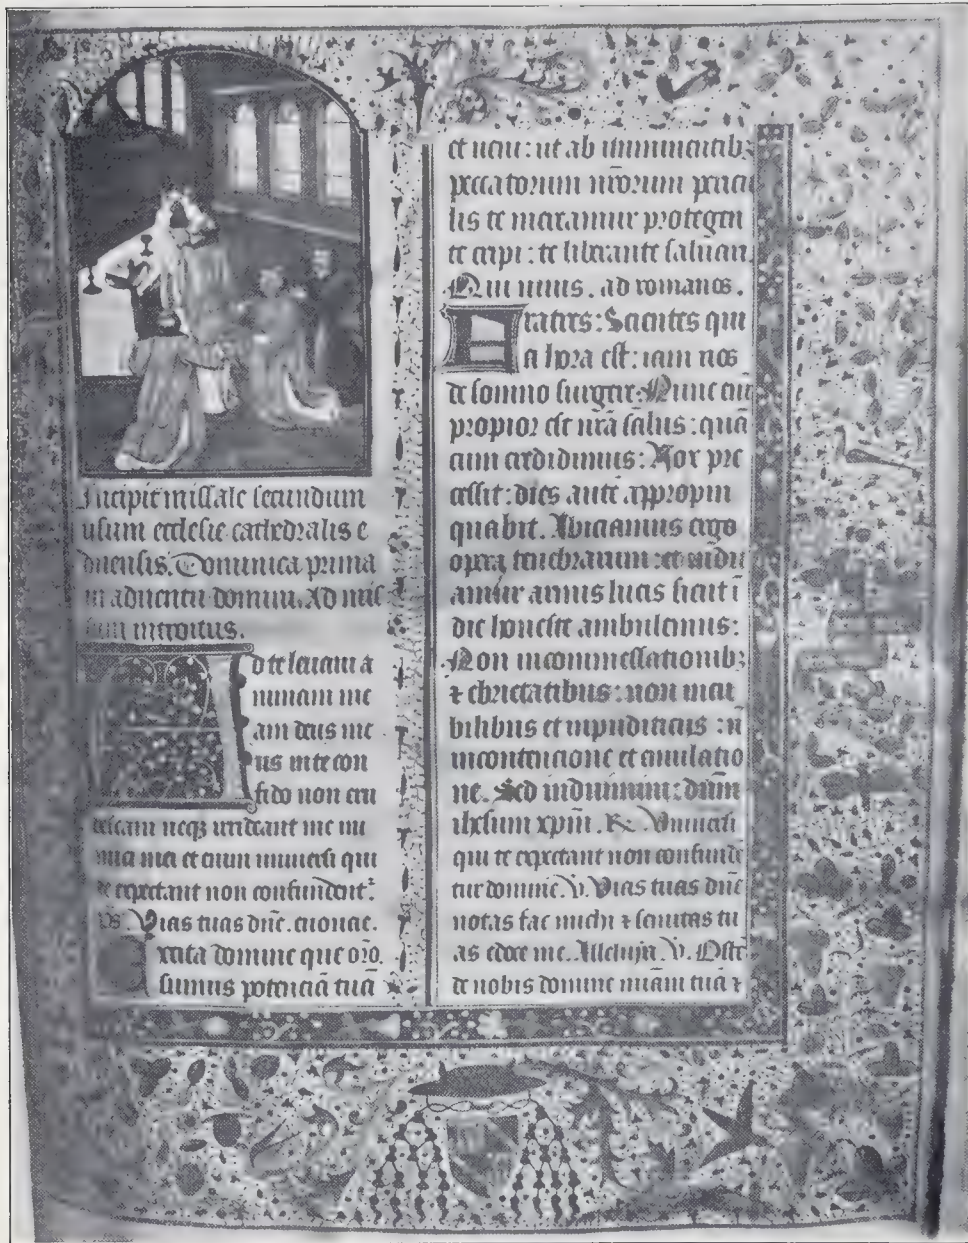 Incipit missale secundum
usum ecclesie cathedralis e
duensis. Dominica prima
in aduentu domini. Ad mis
sam introitus.
Ad te leuaui a
nimam me
am deus me
us in te con
fido non eru
bescam neqz irrideant me ini
mici mei et enim uniuersi qui
te expectant non confundent᷑
Vs. Vias tuas dn̄e. euouae.
Excita domine que oro.
sumus potenciā tuā
et ueni: ut ab imminentibz
peccatorum nr̄orum pericu
lis te mereamur protegen
te eripi: te liberante saluari
Qui uiuis. ad romanos.
Fratres: Scientes qui
a hora est: iam nos
de somno surgere. Nunc em̄
propior est nr̄a salus: quā
cum credidimus: Nox pre
cessit: dies autē appropin
quabit. Abiciamus ergo
opera tenebrarum: et indu
amur armis lucis sicut ī
die honeste ambulemus:
Non in commessationibz
⁊ ebrietatibus: non in cu
bilibus et inpudiciciis: n̄
in contencione et emulatio
ne. Sed induimini: dn̄m
ihesum xpm̄. R. Uniuersi
qui te expectant non confunde
tur domine V. Vias tuas dn̄e
notas fac michi ⁊ semitas tu
as edoce me. Alleluya. V. Ostē
de nobis domine miam̄ tuā ⁊